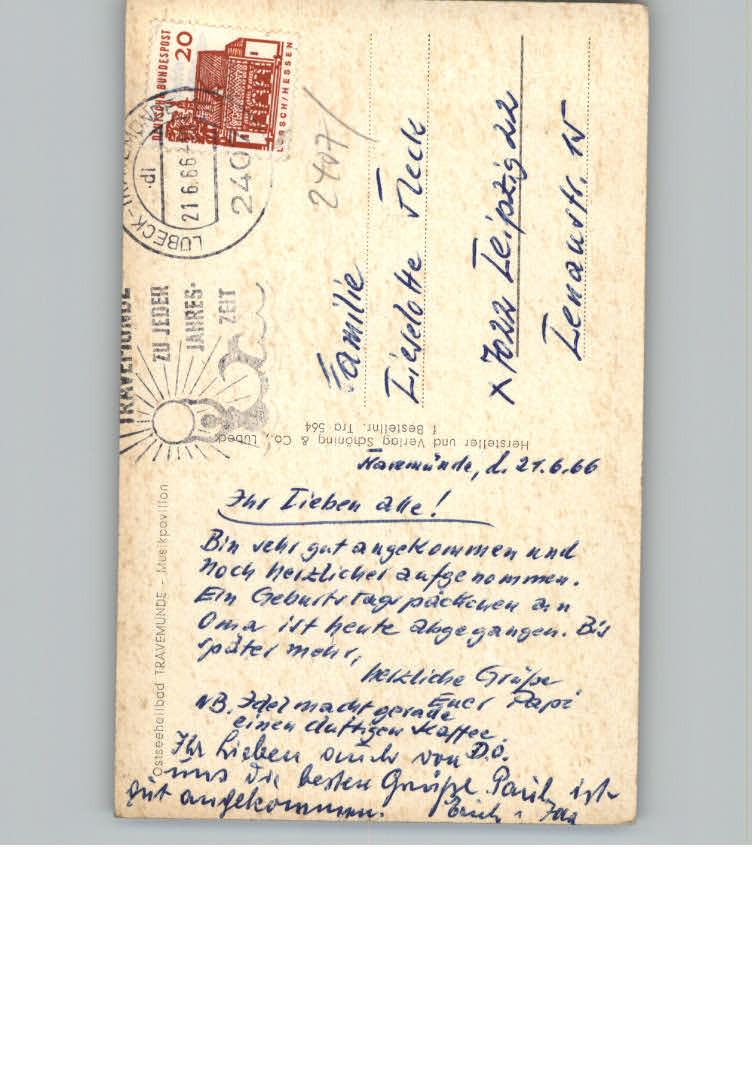 Ostseeheilbad TRAVEMÜNDE - Musikpavillon
Travemünde, d. 21.6.66
Ihr Lieben alle!
Bin sehr gut angekommen und
noch herzlicher aufgenommen.
Ein Geburtstagspäckchen an
Oma ist heute abgegangen. Bis
später mehr,
herzliche Grüße
Euer Papi
NB. Idel macht gerade
einen duftigen Kaffee.
D.O.
Ihr Lieben auch von
uns die besten Grüße. Paul ist
gut angekommen. Erich u. Ida
Hersteller und Verlag Schöning & Co., Lübeck
Bestellnr. Tra 564
TRAVEMÜNDE
ZU JEDER
JAHRES-
ZEIT
LÜBECK-TRAVEMÜNDE
21.6.66
240
DEUTSCHE BUNDESPOST
20
LORSCH/HESSEN
2407/
Familie
Lieselotte Fleck
x 7022 Leipzig 22
Lenaustr. 15